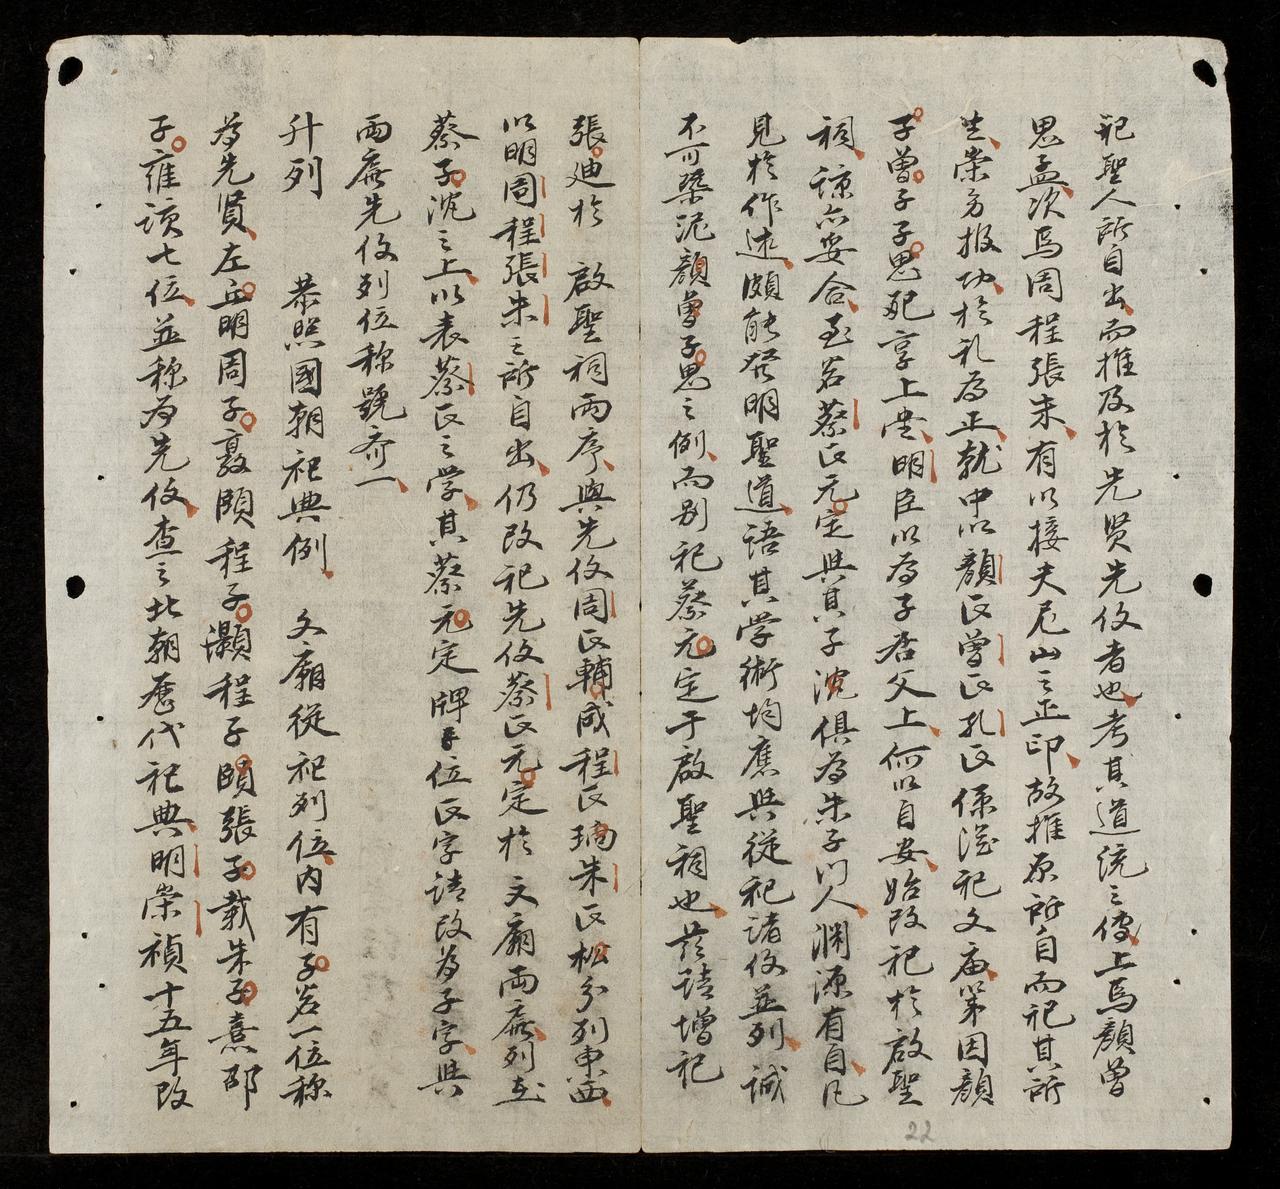 祀聖人所自出而推及於先贤先伩者也考其道統之傳上焉顏曾
思孟次焉周程張朱有以接夫尼山之正印故推原所自而祀其所
生崇夯报功於礼為正就中以顏氏曾氏孔氏係從祀文庙第因顏
子曾子子思祀享上堂明臣以為子居父上何以自安始改祀於啟聖
祠諒亦妥合至若蔡氏元定與其子沈俱為朱子门人渊源有自凡
見於作述頗能發明聖道語其学術均應與從祀諸伩並列誠
不可槩泥顏曾子思之例而别祀蔡元定于啟聖祠也兹請增祀
張迪於 啟聖祠两序與先伩周氏輔成程氏珦朱氏松分列東西
以明周程張朱之所自出仍改祀先伩蔡氏元定於 文廟両廡列在
蔡子沈之上以表蔡氏之学其蔡元定牌位氏字請改為子字與
両廡先伩列位称號齐一
升列 恭照國朝祀典例 文廟從祀列位内有子者一位称
為先賢左丘明周子敦頤程子灝程子頤張子載朱子熹邵
子雍该七位並称为先伩查之北朝歷代祀典明崇禎十五年改
22